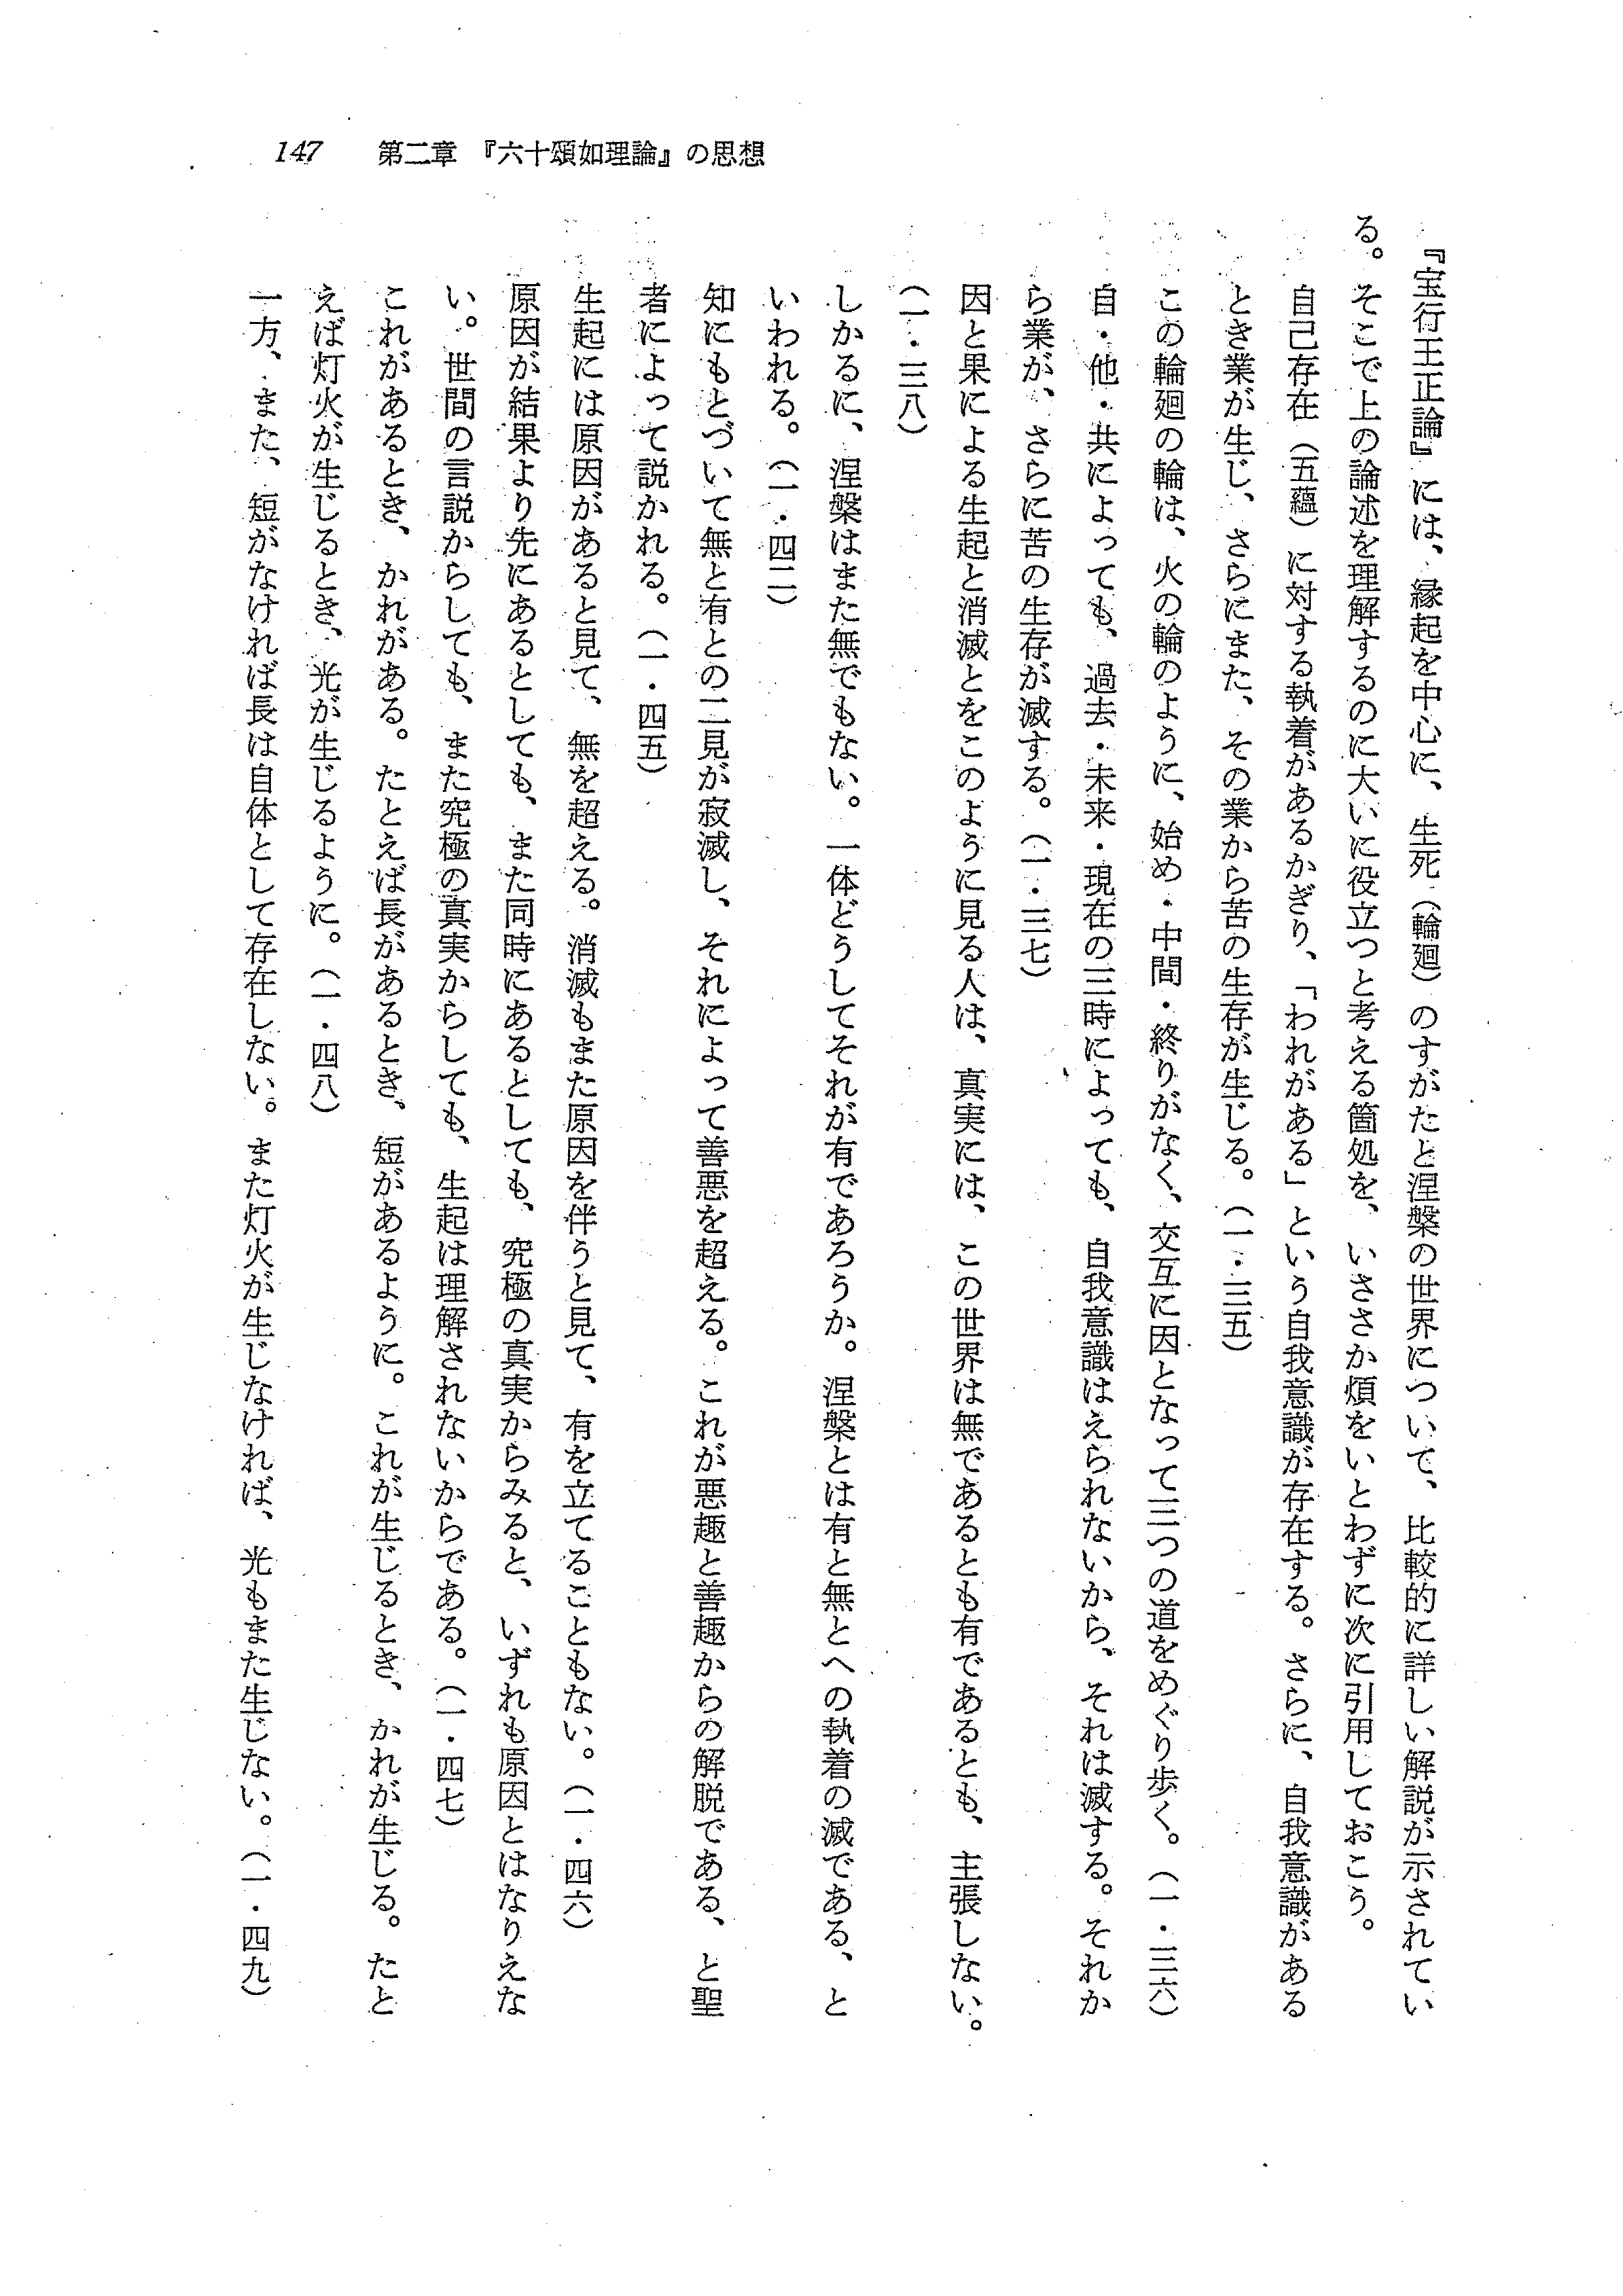 147　第二章　『六十頌如理論』の思想
『宝行王正論』には、縁起を中心に、生死（輪廻）のすがたと涅槃の世界について、比較的に詳しい解説が示されてい
る。そこで上の論述を理解するのに大いに役立つと考える箇処を、いささか煩をいとわずに次に引用しておこう。
自己存在（五蘊）に対する執着があるかぎり、「われがある」という自我意識が存在する。さらに、自我意識がある
とき業が生じ、さらにまた、その業から苦の生存が生じる。（一・三五）
この輪廻の輪は、火の輪のように、始め・中間・終りがなく、交互に因となって三つの道をめぐり歩く。（一・三六）
自・他・共によっても、過去・未来・現在の三時によっても、自我意識はえられないから、それは滅する。それか
ら業が、さらに苦の生存が滅する。（一・三七）
因と果による生起と消滅とをこのように見る人は、真実には、この世界は無であるとも有であるとも、主張しない。
（一・三八）
しかるに、涅槃はまた無でもない。一体どうしてそれが有であろうか。涅槃とは有と無とへの執着の滅である、と
いわれる。（一・四二）
知にもとづいて無と有との二見が寂滅し、それによって善悪を超える。これが悪趣と善趣からの解脱である、と聖
者によって説かれる。（一・四五）
生起には原因があると見て、無を超える。消滅もまた原因を伴うと見て、有を立てることもない。（一・四六）
原因が結果より先にあるとしても、また同時にあるとしても、究極の真実からみると、いずれも原因とはなりえな
い。世間の言説からしても、また究極の真実からしても、生起は理解されないからである。（一・四七）
これがあるとき、かれがある。たとえば長があるとき、短があるように。これが生じるとき、かれが生じる。たと
えば灯火が生じるとき、光が生じるように。（一・四八）
一方、また、短がなければ長は自体として存在しない。また灯火が生じなければ、光もまた生じない。（一・四九）